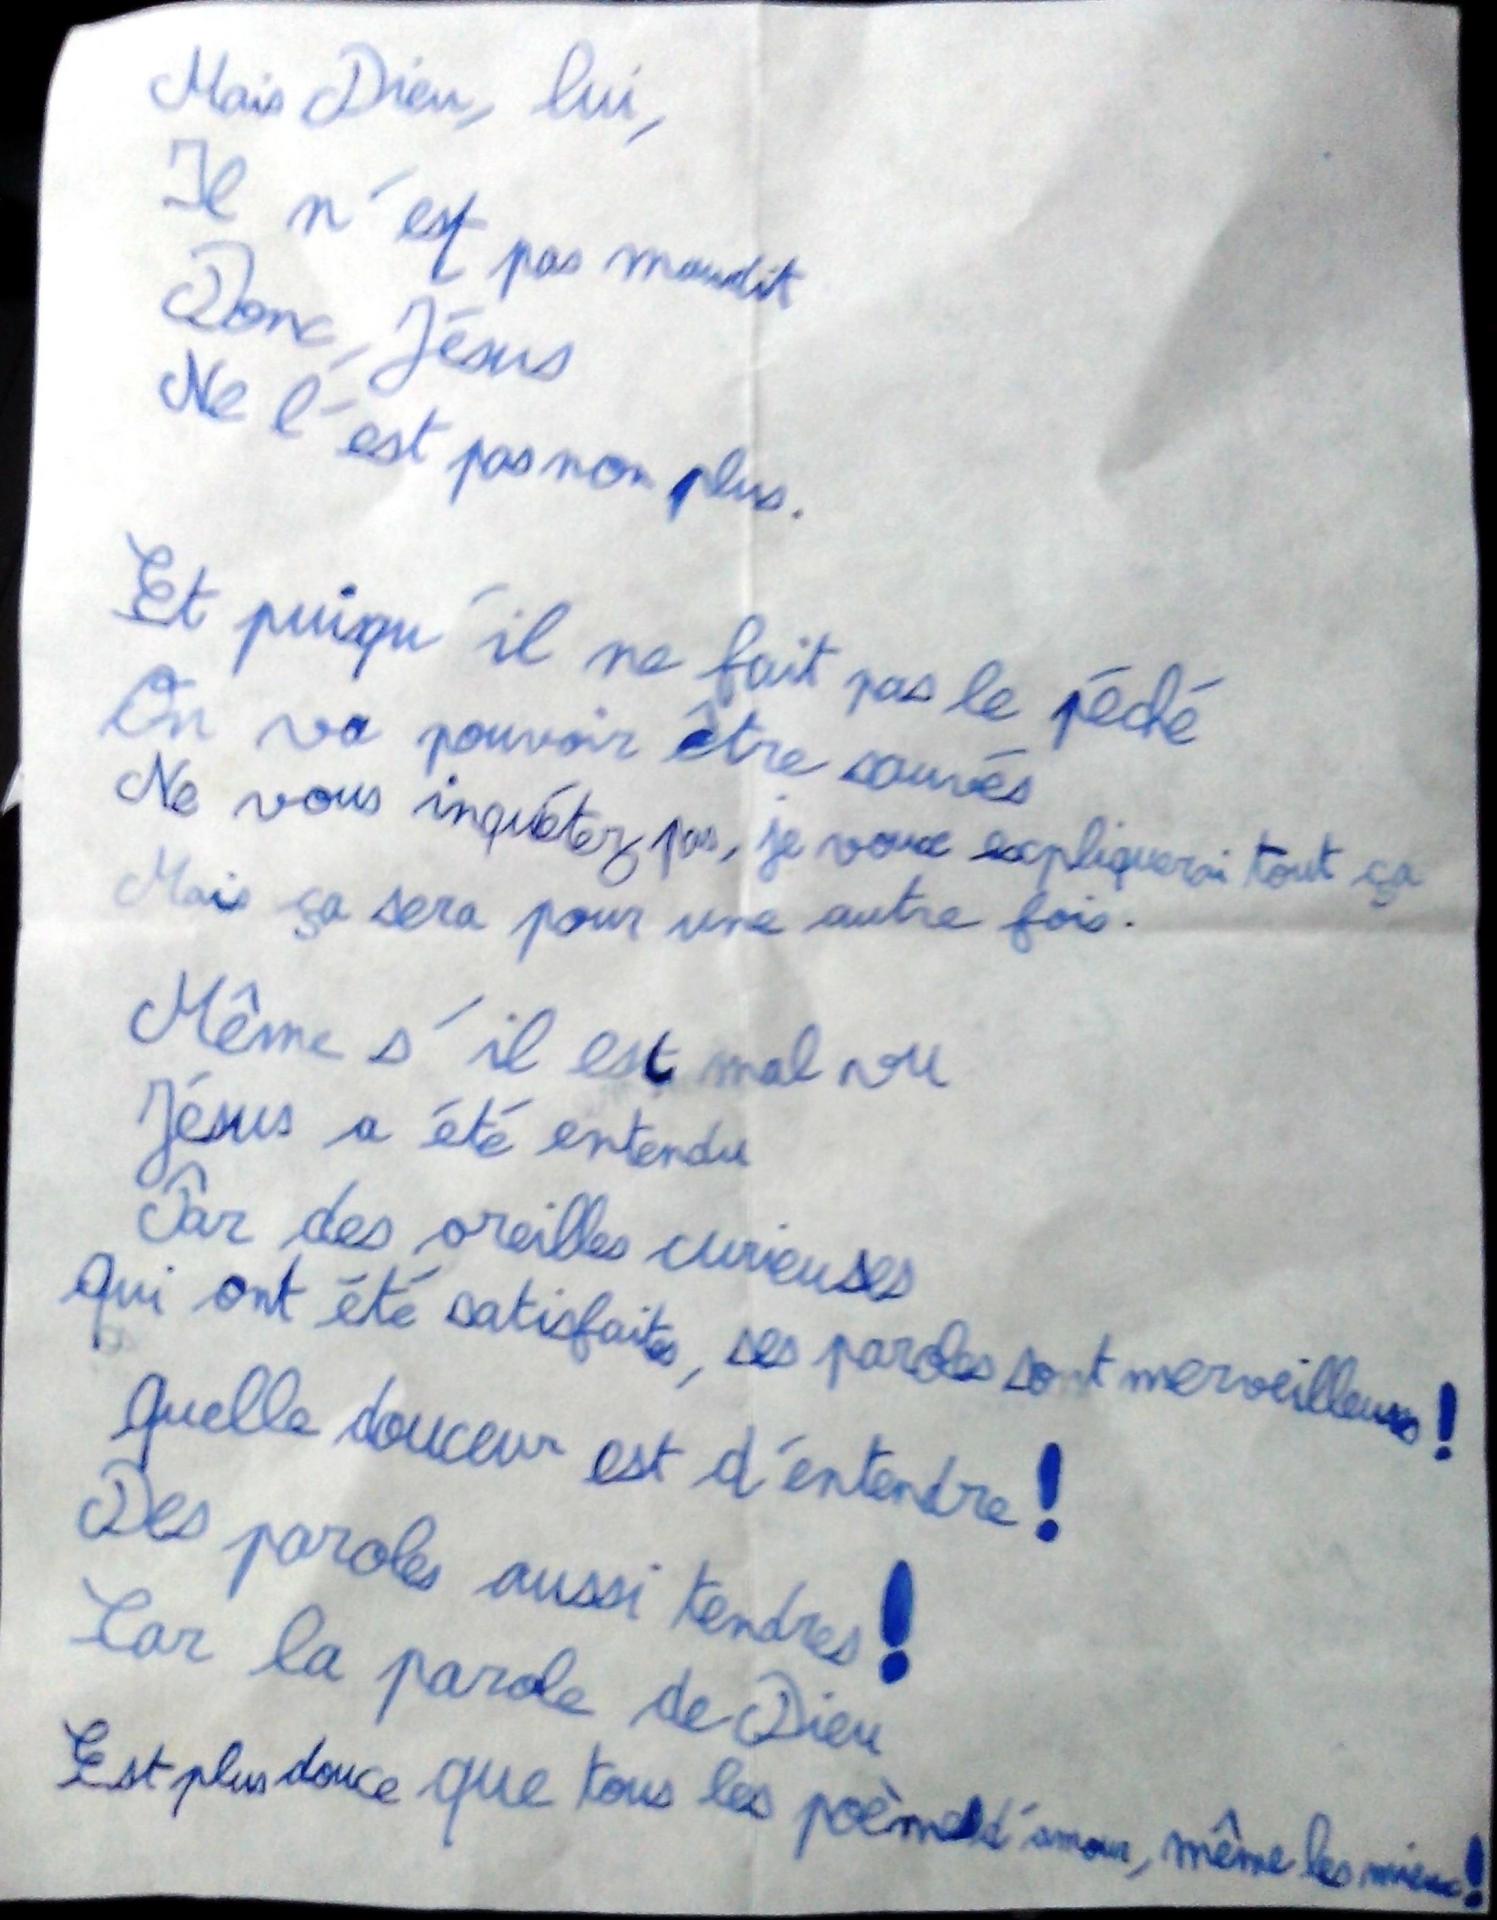 Mais Dieu, lui,
Il n'est pas maudit
Donc, Jésus
Ne l'est pas non plus.
Et puisqu'il ne fait pas le péché
On va pouvoir être sauvés
Ne vous inquiétez pas, je vous expliquerai tout ça
Mais ça sera pour une autre fois.
Même s'il est mal vu
Jésus a été entendu
Par des oreilles curieuses
qui ont été satisfaites, ses paroles sont merveilleuses!
Quelle douceur est d'entendre!
Des paroles aussi tendres!
Car la parole de Dieu
Est plus douce que tous les poèmes d'amour, même les mieux!